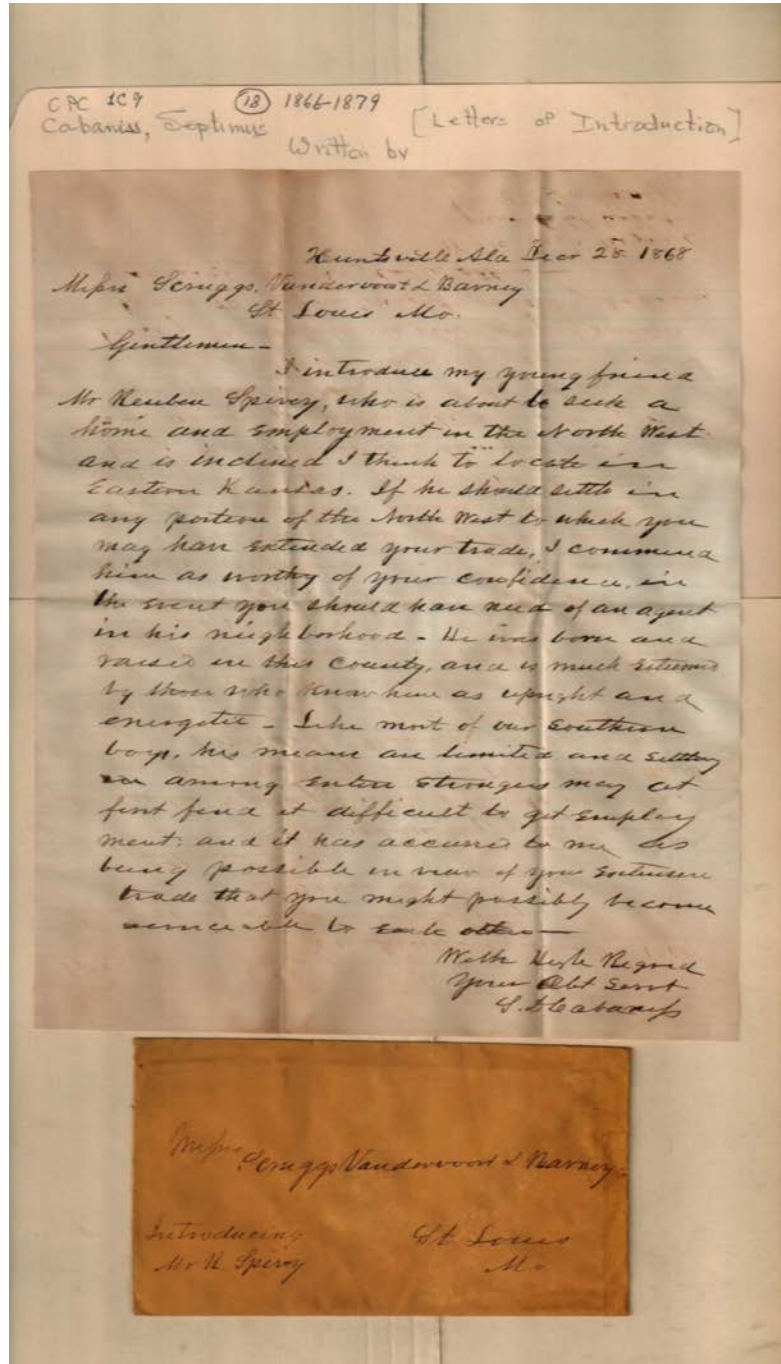 CPC 1C9 (18) 1866-1879
Cabaniss, Septimus [Letters of Introduction]
Written by
Huntsville Ala Decr 28 1868
Messrs Scruggs, Vandervoort & Barney
St Louis Mo.
Gentlemen -
I introduce my young friend
Mr Reuben Spivey, who is about to seek a
home and employment in the North West
and is inclined I think to locate in
Eastern Kansas. If he should settle in
any portion of the North West to which you
may have extended your trade, I commend
him as worthy of your confidence, in
the event you should have need of an agent
in his neighborhood - He was born and
raised in this county, and is much esteemed
by those who know him as upright and
energetic - Like most of our southern
boys, his means are limited and settling
among entire strangers may at
first find it difficult to get employ
ment: and it has occurred to me as
being possible in view of your extensive
trade that you might possibly become
serviceable to each other -
With High Regard
Your Obt Servt
S. D. Cabaniss
Messrs Scruggs Vandervoort & Barney
Introducing St Louis
Mr R Spivey Mo